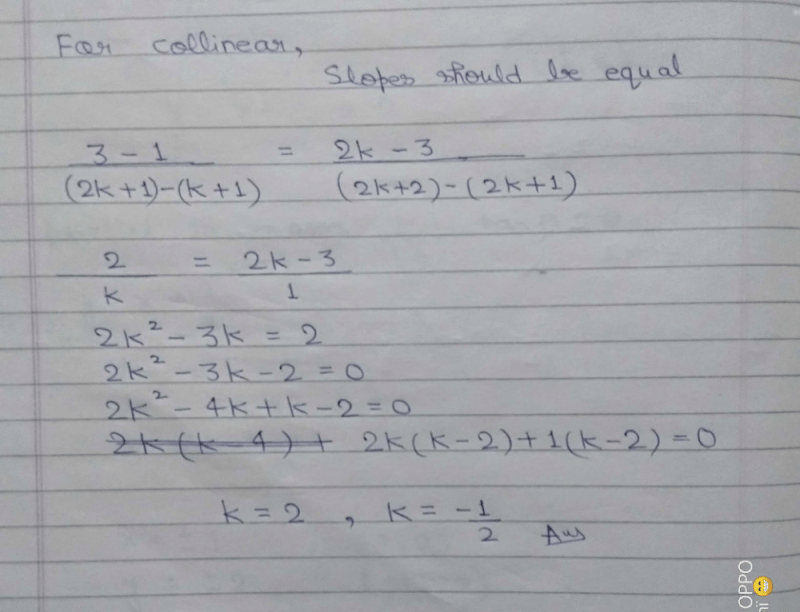 For collinear,
Slopes should be equal
3 - 1 / (2k+1)-(k+1) = 2k - 3 / (2k+2)-(2k+1)
2 / k = 2k - 3 / 1
2k² - 3k = 2
2k² - 3k - 2 = 0
2k² - 4k + k - 2 = 0
2k(k-4) + 2k(k-2)+1(k-2) = 0
k = 2 , k = -1/2 Ans
OPPO